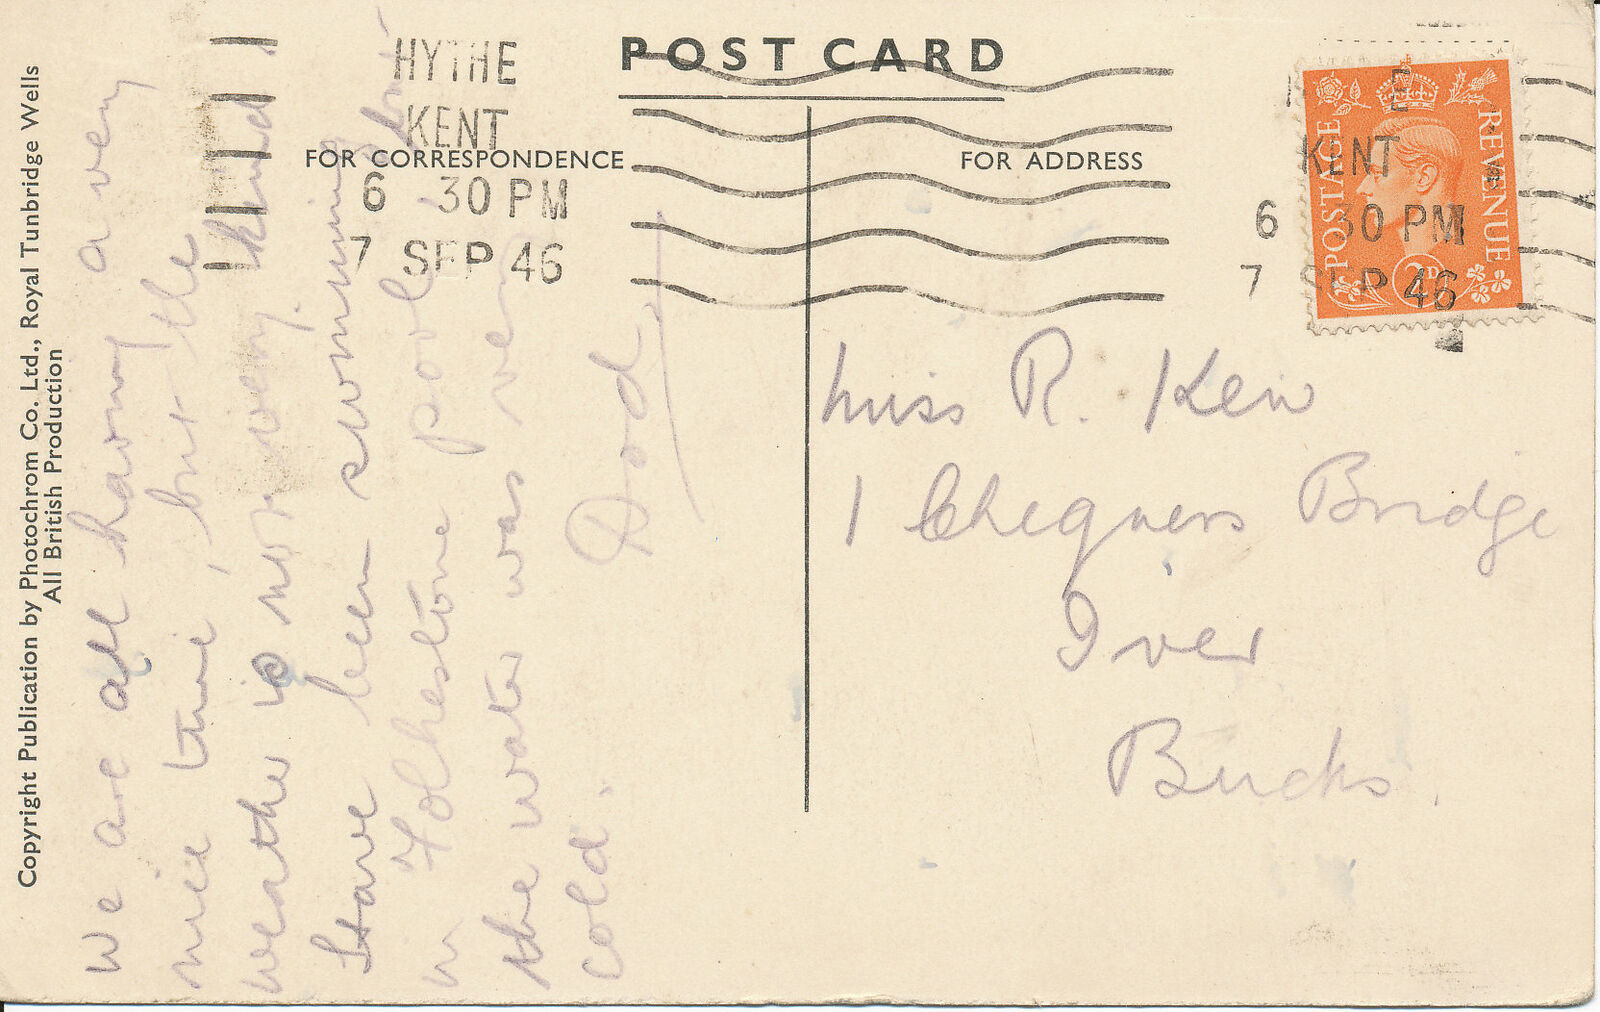 POST CARD
FOR CORRESPONDENCE
FOR ADDRESS
Copyright Publication by Photochrom Co. Ltd., Royal Tunbridge Wells
All British Production
HYTHE
KENT
6 30 PM
7 SEP 46
E
KENT
6 30 PM
7 SEP 46
POSTAGE
REVENUE
2D
we are all having a very
nice time, but the
weather is not very kind.
Have been swimming
in Folkestone pool, but
the water was very
cold.
Dod
Miss R. Kew
1 Chequers Bridge
Iver
Bucks.